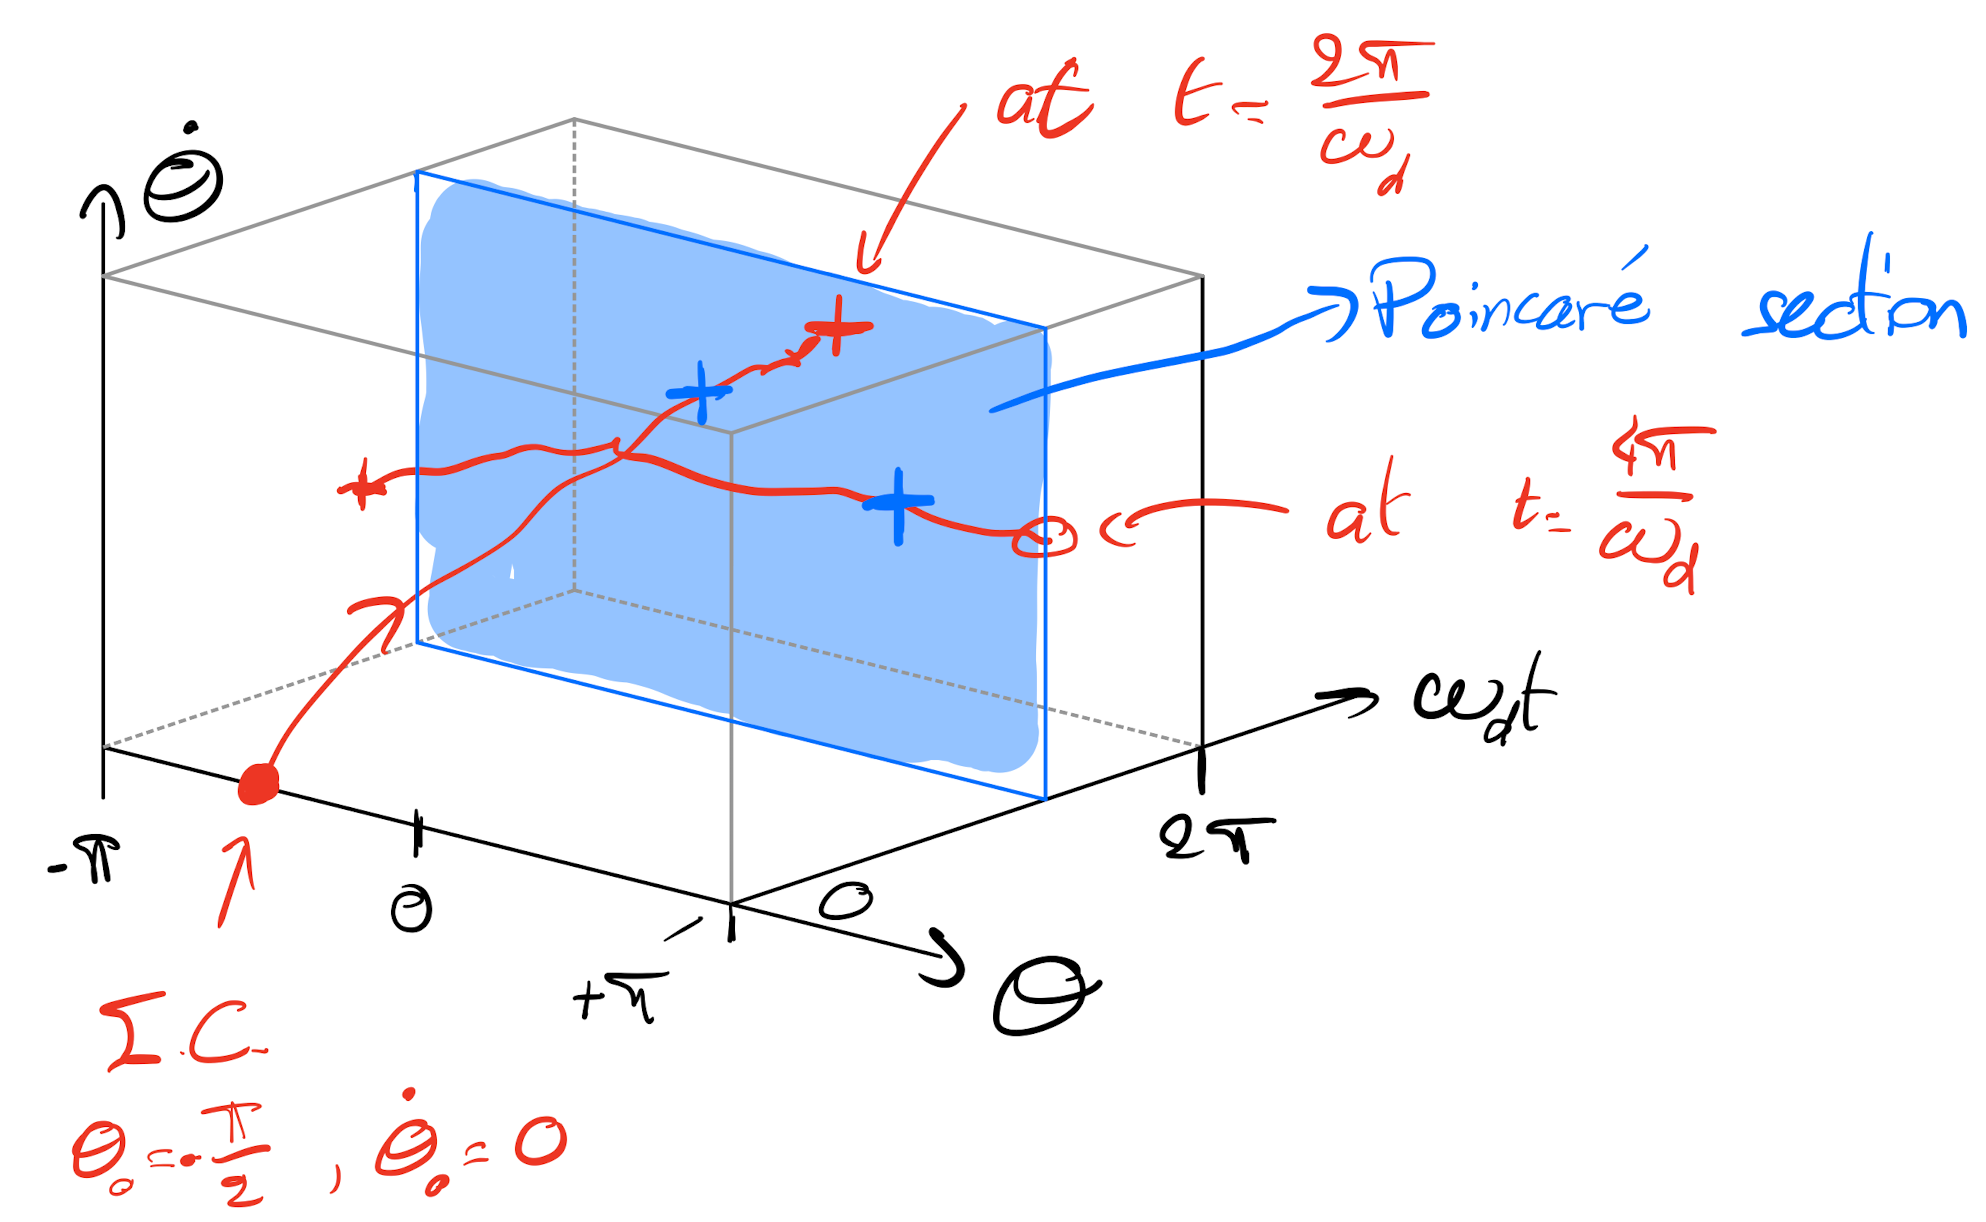 at t = 2π/ω_d
θ̇
Poincaré section
at t = 4π/ω_d
ω_d t
2π
-π
0
0
+π
θ
I.C.
θ₀ = -π/2 , θ̇₀ = 0